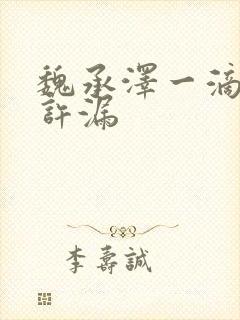 魏承澤一滴
許漏
李壽誠